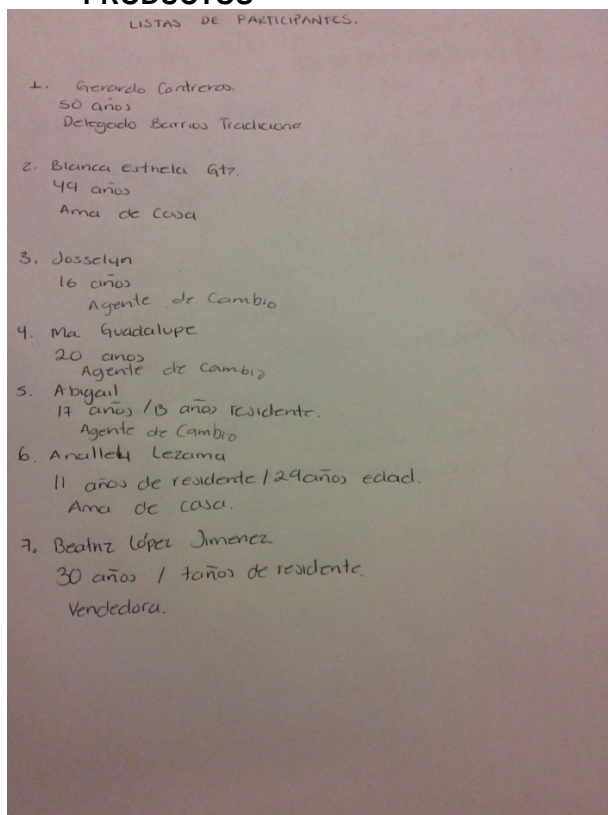 PRODUCTOS
LISTAS DE PARTICIPANTES.
1. Gerardo Contreras.
50 años
Delegado Barrios Tradicional
2. Blanca Esthela Gtz.
49 años
Ama de Casa
3. Josselyn
16 años
Agente de Cambio
4. Ma. Guadalupe
20 anos
Agente de cambio
5. Abigail
17 años / 13 años residente.
Agente de Cambio
6. Anallely Lezama
11 años de residente / 29 años edad.
Ama de casa.
7. Beatriz López Jimenez
30 años / 7 años de residente.
Vendedora.